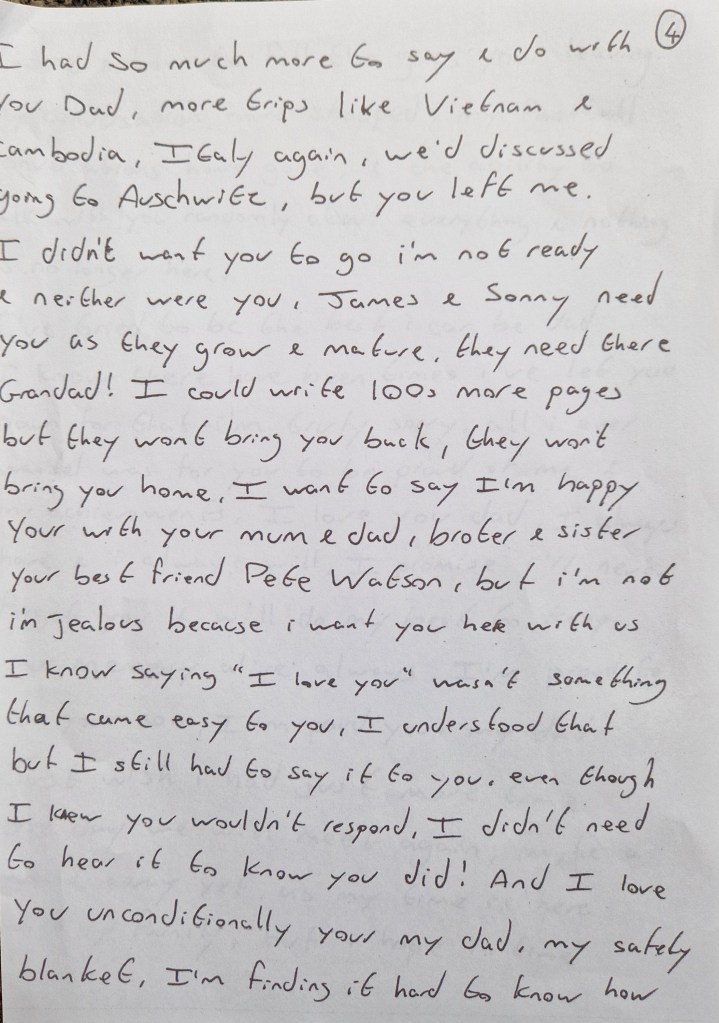 4
I had so much more to say & do with
you Dad, more trips like Vietnam &
Cambodia, Italy again, we'd discussed
going to Auschwitz, but you left me.
I didn't want you to go i'm not ready
& neither were you, James & Sonny need
you as they grow & mature, they need there
Grandad! I could write 100s more pages
but they wont bring you back, they wont
bring you home, I want to say I'm happy
your with your mum & dad, broter & sister
your best friend Pete Watson, but i'm not
i'm jealous because i want you here with us
I know saying "I love you" wasn't something
that came easy to you, I understood that
but I still had to say it to you. even though
I knew you wouldn't respond, I didn't need
to hear it to know you did! And I love
you unconditionally your my dad, my safety
blanket, I'm finding it hard to know how